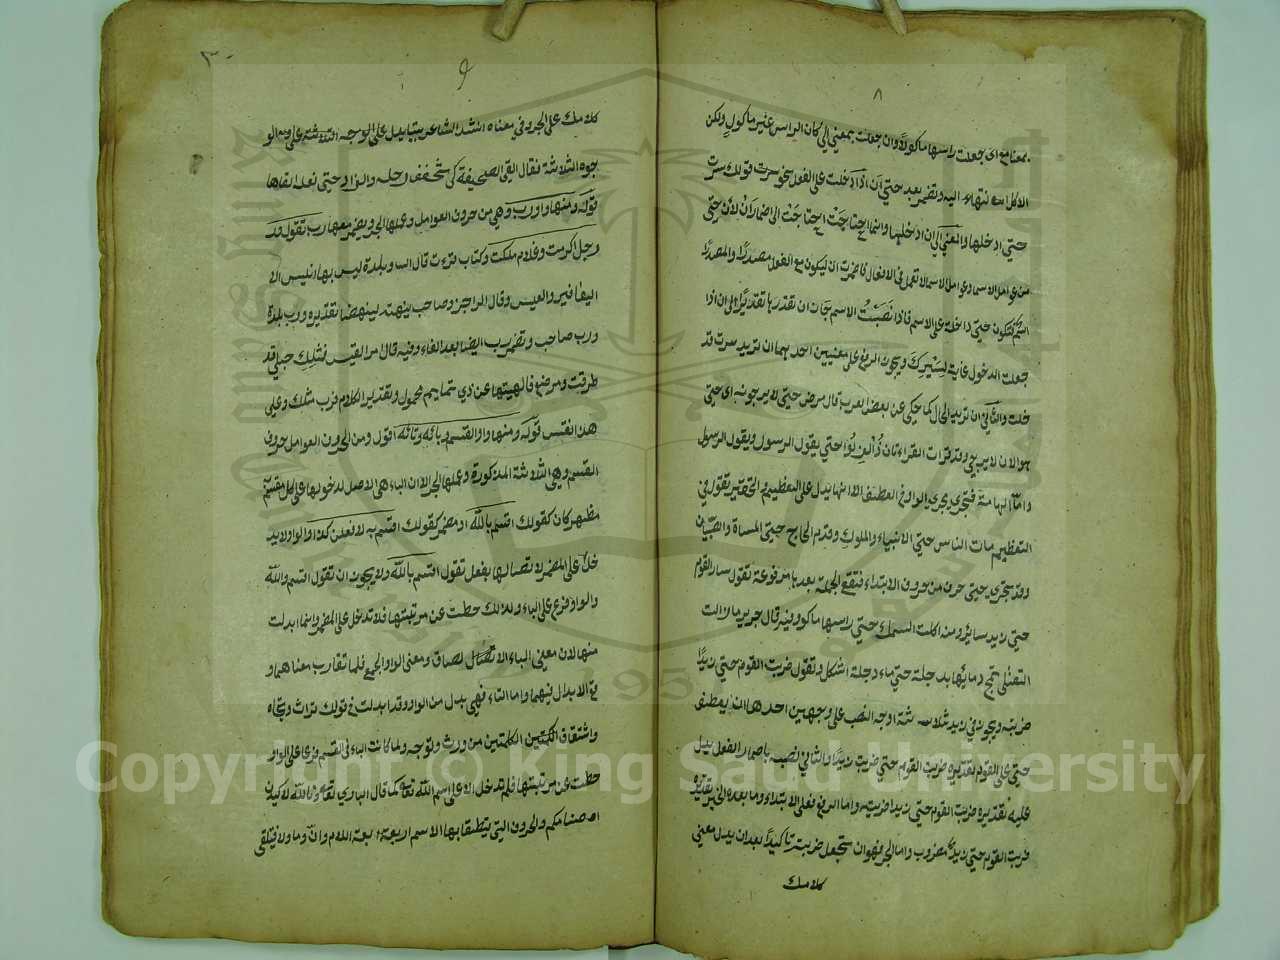 ٨
بمعنا مع اى جعلت راسها ماكولا وان جعلت بمعني الي كان الراس غير ماكول ولكن
الاكل انتهاء اليه وتضمر بعد حتي ان اذا دخلت على الفعل نحو سرت قولك سرت
حتي ادخلها والمعني الي ان ادخلها وانما احتاجت الي اضمار ان لأن حتي
من عوامل الاسما وعوامل الاسما لا تعمل في الافعال فاضمرت ان ليكون مع الفعل مصدرًا والمصدرُ
اسم فتكون حتي داخلة على الاسم فاذا نَصَبَتْ الاسم جاز ان تقدرها تقديرً الي ان اذا
جعلت الدخول غاية لسَيْرِكَ ويجوز الرفع على معنيين احدهما ان تريد سرت قد
دخلت والثاني ان تريد الحال كما حكي عن بعض العرب قال مرض حتي لا يرجونه اى حتي
هو الان لا يرجي وقد قرات القراءتان وزُلْزِلُوا حتي يقول الرسول ويقول الرسول
واما العاطفة فتجري مجري الواو في العطف الا انها يدل على التعظيم والتحقير تقول في
التعظيم مات الناس حتي الانبياء والملوك وقدم الحاج حتي المشاة والصبيان
وقد تجري حتي حرف من حروف الابتداء فتقع الجملة بعدها مرفوعة تقول سار القوم
حتي زيد سائر ومنه اكلت السمك حتي راسها ماكول وفيه قال جرير ما زالت
القتلى تمج دمائها بدجلة حتي ماء دجلة اشكل وتقول ضربت القوم حتي زيدًا
ضربته ويجوز في زيد ثلاثة اوجه النصب على وجهين احدها ان يعطف
حتي على القوم تقديره ضربت القوم حتي ضربت زيدًا والثاني نصبه باضمار الفعل يدل
عليه تقديره ضربت القوم حتي زيدا ضربته واما الرفع فعلى الابتداء وما بعده الخبر تقديره
ضربت القوم حتي زيدٌ مضروب واما الجر فهو ان تجعل ضربته تاكيدًا بعد ان يدل معني
كلامك
٩
كلامك على الجر وفي معناه انشد الشاعر بيتا يدل على الوجه الثلاثة على هذه الو
جوه الثلاثة نقال القى الصحيفة كى يخفف رحله والزاد حتى نعله القاها
قوله ومنها واو رب وهي من حروف العوامل وعملها الجر ويضمر معها رب تقول قد
ورجل اكرمت وغلام ملكت وكتاب قرءت قال الشاعر وبلدة ليس بها انيس الا
اليعافير والعيس وقال الراجز وصاحب ينهته لينهضا تقديره ورب بلدة
ورب صاحب وتضمر رب ايضا بعد الفاء وفيه قال امر القيس فمثلك حبلي قد
طرقت ومرضع فالهيتها عن ذي تمايم محمول وتقدير الكلام فرب مثلك وعلى
هذا فقس قوله ومنها واو القسم وبائه وتائه اقول ومن الحروف العوامل حروف
القسم وهي الثلاثة المذكورة وعملها الجر الا ان الباء هي الاصل لدخولها على كل مقسم
مظهر كان كقولك اقسم بالله او مضمر كقولك اقسم به لافعلن كذا والواو لا يد
خل على المضمر لاتصالها بفعل تقول اقسم بالله ولا يجوز ان تقول اقسم والله
والواو فرع على الباء ولذلك حطت عن مرتبتها فلا تدخل على المضمر وانما ابدلت
منها لان معني الباء الاتصال لصاق ومعني الواو الجمع فلما تقارب معناهما و
قع الابدال فيهما واما التاء فهي بدل من الواو وقد ابدلت في قولك تراث وتجاه
واشتقاق الكلمتين الكلمتين من ورث وتوجه ولما كانت الباء في القسم فرعا على الواو
حطت عن مرتبتها فلم تدخل الا على اسم الله تعا كما قال الباري تعا وتالله لاكيدن
اصنامكم والحروف التي يتلقا بها الاسم اربعة اللام وان وما ولا فيتلقى